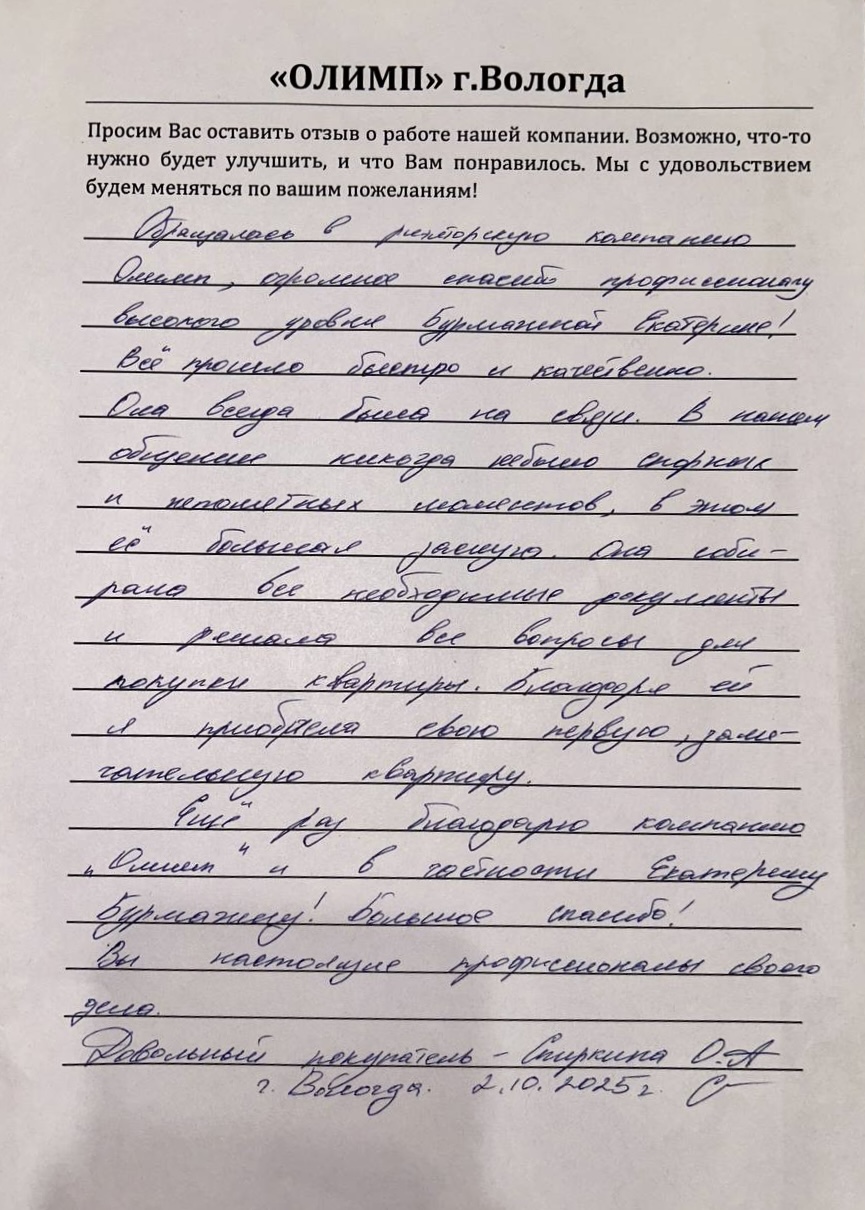 «ОЛИМП» г.Вологда
Просим Вас оставить отзыв о работе нашей компании. Возможно, что-то
нужно будет улучшить, и что Вам понравилось. Мы с удовольствием
будем меняться по вашим пожеланиям!
Обращалась в риэлторскую компанию
Олимп, огромное спасибо профессионалу
высокого уровня Бурмажиной Екатерине!
Всё прошло быстро и качественно.
Она всегда была на связи. В нашем
общении никогда небыло спорных
и непонятных моментов, в этом
её большая заслуга. Она соби-
рала все необходимые документы
и решала все вопросы для
покупки квартиры. Благодоря ей
я приобрела свою первую, заме-
чательную квартиру.
Ещё раз благодарю компанию
„Олимп" и в частности Екатерину
Бурмажину! Большое спасибо!
Вы настоящие профессионалы своего
дела.
Довольный покупатель – Спиркина О.А
г. Вологда. 2.10.2025г.